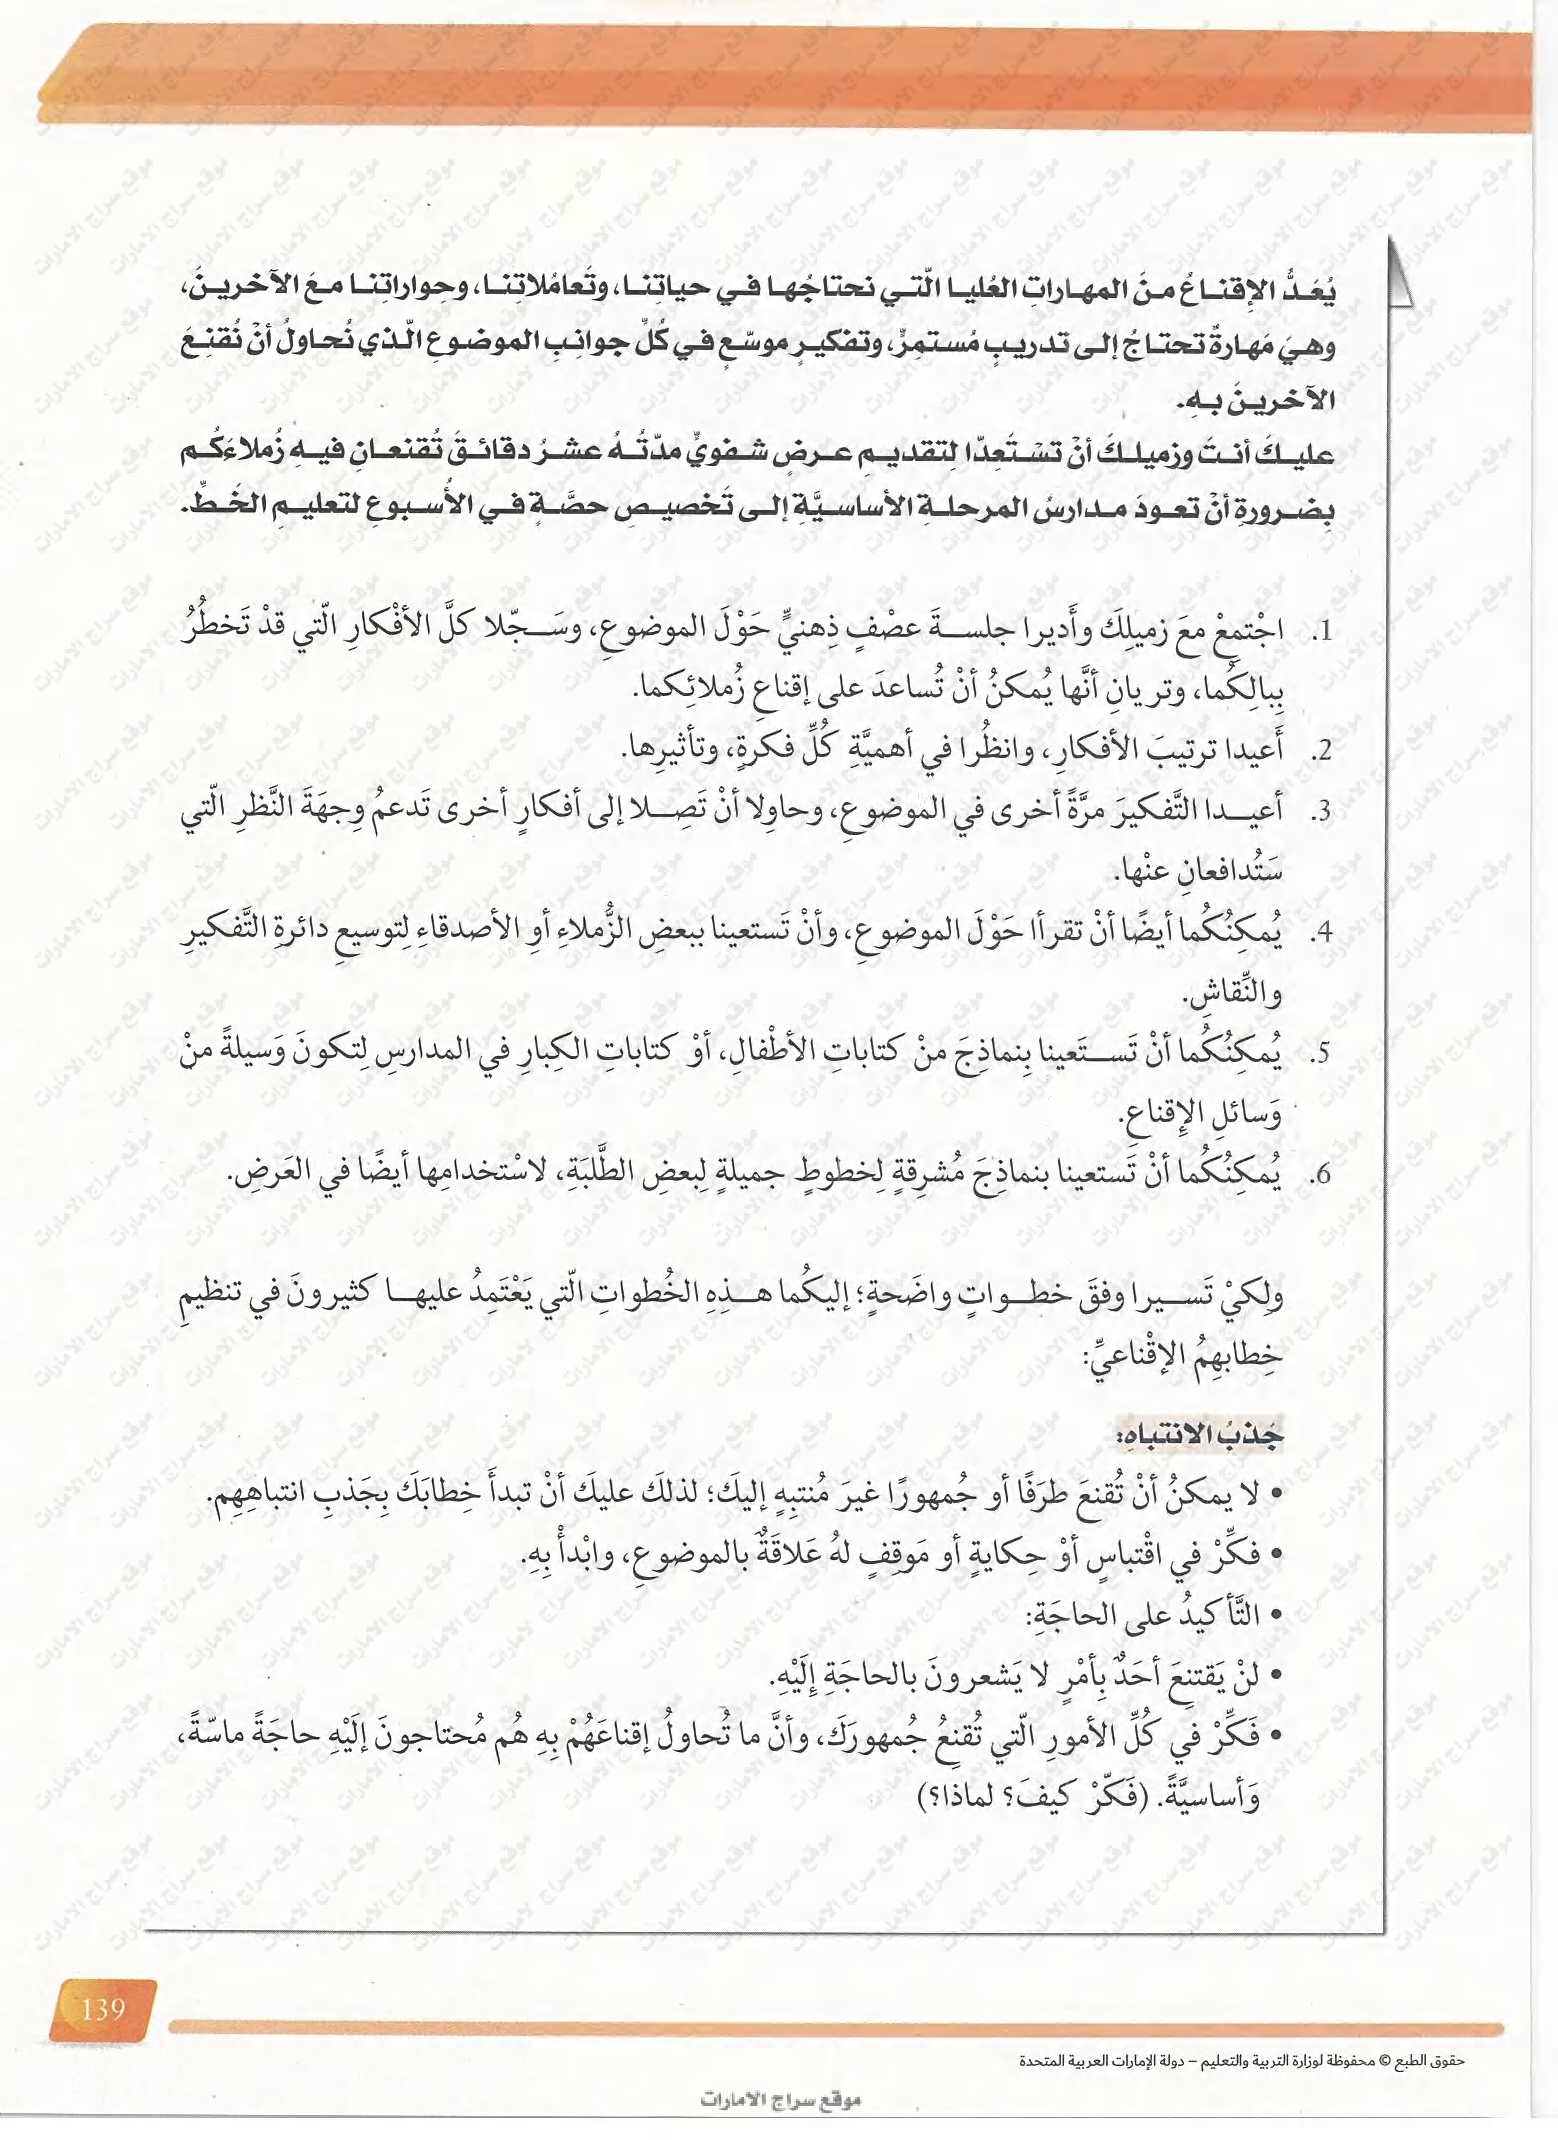 يُعَدُّ الإِقناعُ منَ المهاراتِ العُليا الّتي نحتاجُها في حياتِنا، وتَعامُلاتِنا، وحِواراتِنا معَ الآخرينَ،
وهيَ مَهارةٌ تحتاجُ إلى تدريبٍ مُستمرٍّ، وتفكيرٍ موسّعٍ في كُلِّ جوانبِ الموضوعِ الّذي نُحاولُ أنْ نُقنِعَ
الآخرينَ بهِ.
عليكَ أنتَ وزميلكَ أنْ تسْتَعِدّا لتقديمِ عرضٍ شفويٍّ مدّتُهُ عشرُ دقائقَ تُقنعانِ فيهِ زُملاءَكُم
بِضرورةِ أنْ تعودَ مدارسُ المرحلةِ الأساسيَّةِ إلى تَخصيصِ حصَّةٍ في الأُسبوعِ لتعليمِ الخَطِّ.
1. اجْتمِعْ معَ زميلِكَ وأَديرا جلسةَ عصْفٍ ذِهنيٍّ حَوْلَ الموضوعِ، وسَجّلا كلَّ الأفْكارِ الّتي قدْ تَخطُرُ
بِبالِكُما، وتريانِ أنَّها يُمكنُ أنْ تُساعدَ على إقناعِ زُملائِكما.
2. أَعيدا ترتيبَ الأفكارِ، وانظُرا في أهميَّةِ كُلِّ فكرةٍ، وتأثيرِها.
3. أعيدا التَّفكيرَ مرَّةً أخرى في الموضوعِ، وحاوِلا أنْ تَصِلا إلى أفكارٍ أخرى تَدعمُ وِجهَةَ النَّظرِ الّتي
سَتُدافعانِ عنْها.
4. يُمكِنُكُما أيضًا أنْ تقرأا حَوْلَ الموضوعِ، وأنْ تَستعينا ببعضِ الزُّملاءِ أوِ الأصدقاءِ لِتوسيعِ دائرةِ التَّفكيرِ
والنِّقاشِ.
5. يُمكِنُكُما أنْ تَستَعينا بِنماذِجَ منْ كتاباتِ الأطْفالِ، أوْ كتاباتِ الكِبارِ في المدارسِ لِتكونَ وَسيلةً منْ
وَسائلِ الإِقناعِ.
6. يُمكِنُكُما أنْ تَستعينا بنماذِجَ مُشرِقةٍ لِخطوطٍ جميلةٍ لِبعضِ الطَّلَبَةِ، لاسْتخدامِها أيضًا في العَرضِ.
ولِكيْ تَسيرا وفقَ خطواتٍ واضَحةٍ؛ إليكُما هذِهِ الخُطواتِ الّتي يَعْتَمِدُ عليها كثيرونَ في تنظيمِ
خِطابهِمُ الإقْناعيِّ:
جَذبُ الانتباهِ:
• لا يمكنُ أنْ تُقنعَ طرَفًا أو جُمهورًا غيرَ مُنتبِهٍ إليكَ؛ لذلكَ عليكَ أنْ تبدأَ خِطابَكَ بِجَذبِ انتباهِهِم.
• فكِّرْ في اقْتباسٍ أوْ حِكايةٍ أو مَوقِفٍ لهُ عَلاقَةٌ بالموضوعِ، وابْدأْ بِهِ.
• التَّأكيدُ على الحاجَةِ:
• لنْ يَقتنِعَ أحَدٌ بِأمْرٍ لا يَشعرونَ بالحاجَةِ إِلَيْهِ.
• فَكِّرْ في كُلِّ الأمورِ الّتي تُقنِعُ جُمهورَكَ، وأنَّ ما تُحاولُ إقناعَهُمْ بِهِ هُم مُحتاجونَ إلَيْهِ حاجَةً ماسّةً،
وَأساسيَّةً. (فَكّرْ كيفَ؟ لماذا؟)
139
حقوق الطبع © محفوظة لوزارة التربية والتعليم – دولة الإمارات العربية المتحدة
موقع سراج الامارات